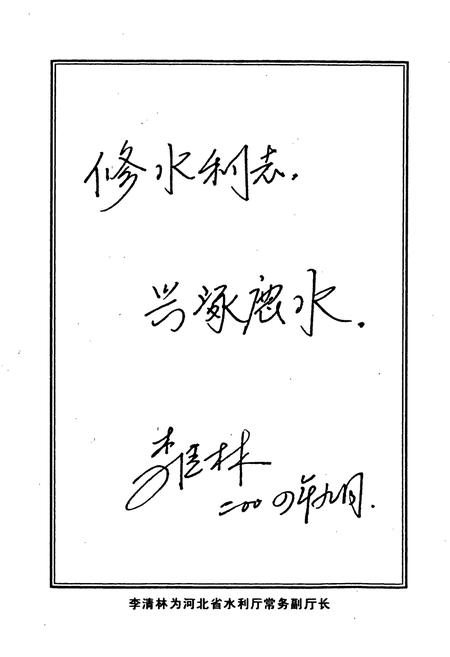 修水利志.
兴涿鹿水.
李清林
二〇〇四年九月.
李清林为河北省水利厅常务副厅长